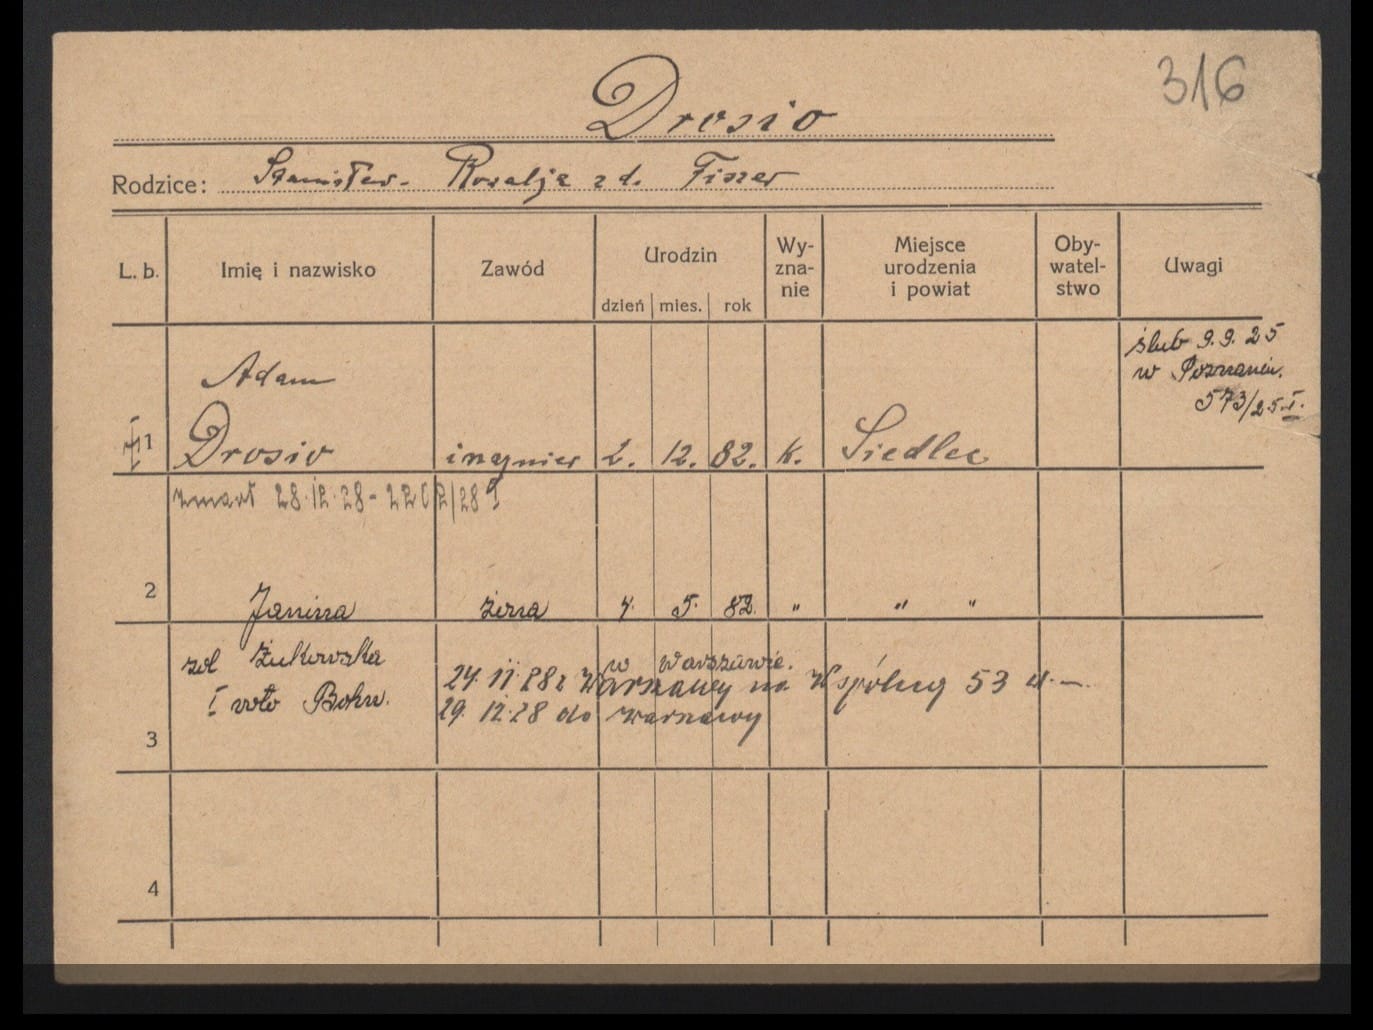 316
Drosio
Rodzice: Stanisław - Rozalja z d. Fiszer
L. b. Imię i nazwisko Zawód Urodzin dzień mies. rok Wy-zna-nie Miejsce urodzenia i powiat Oby-watel-stwo Uwagi
ślub 9.9.25
w Poznaniu.
573/25 I.
Adam
1 Drosio inżynier 2. 12. 82. k. Siedlec
zmarł 28.12.28 - 2202/28 I
2 Janina żona 4. 5. 82. " " "
zd Żukowska w Warszawie.
24.11.28 z Warszawy na Wspólną 53
I voto Bohn.
29.12.28 do Warszawy
3
4